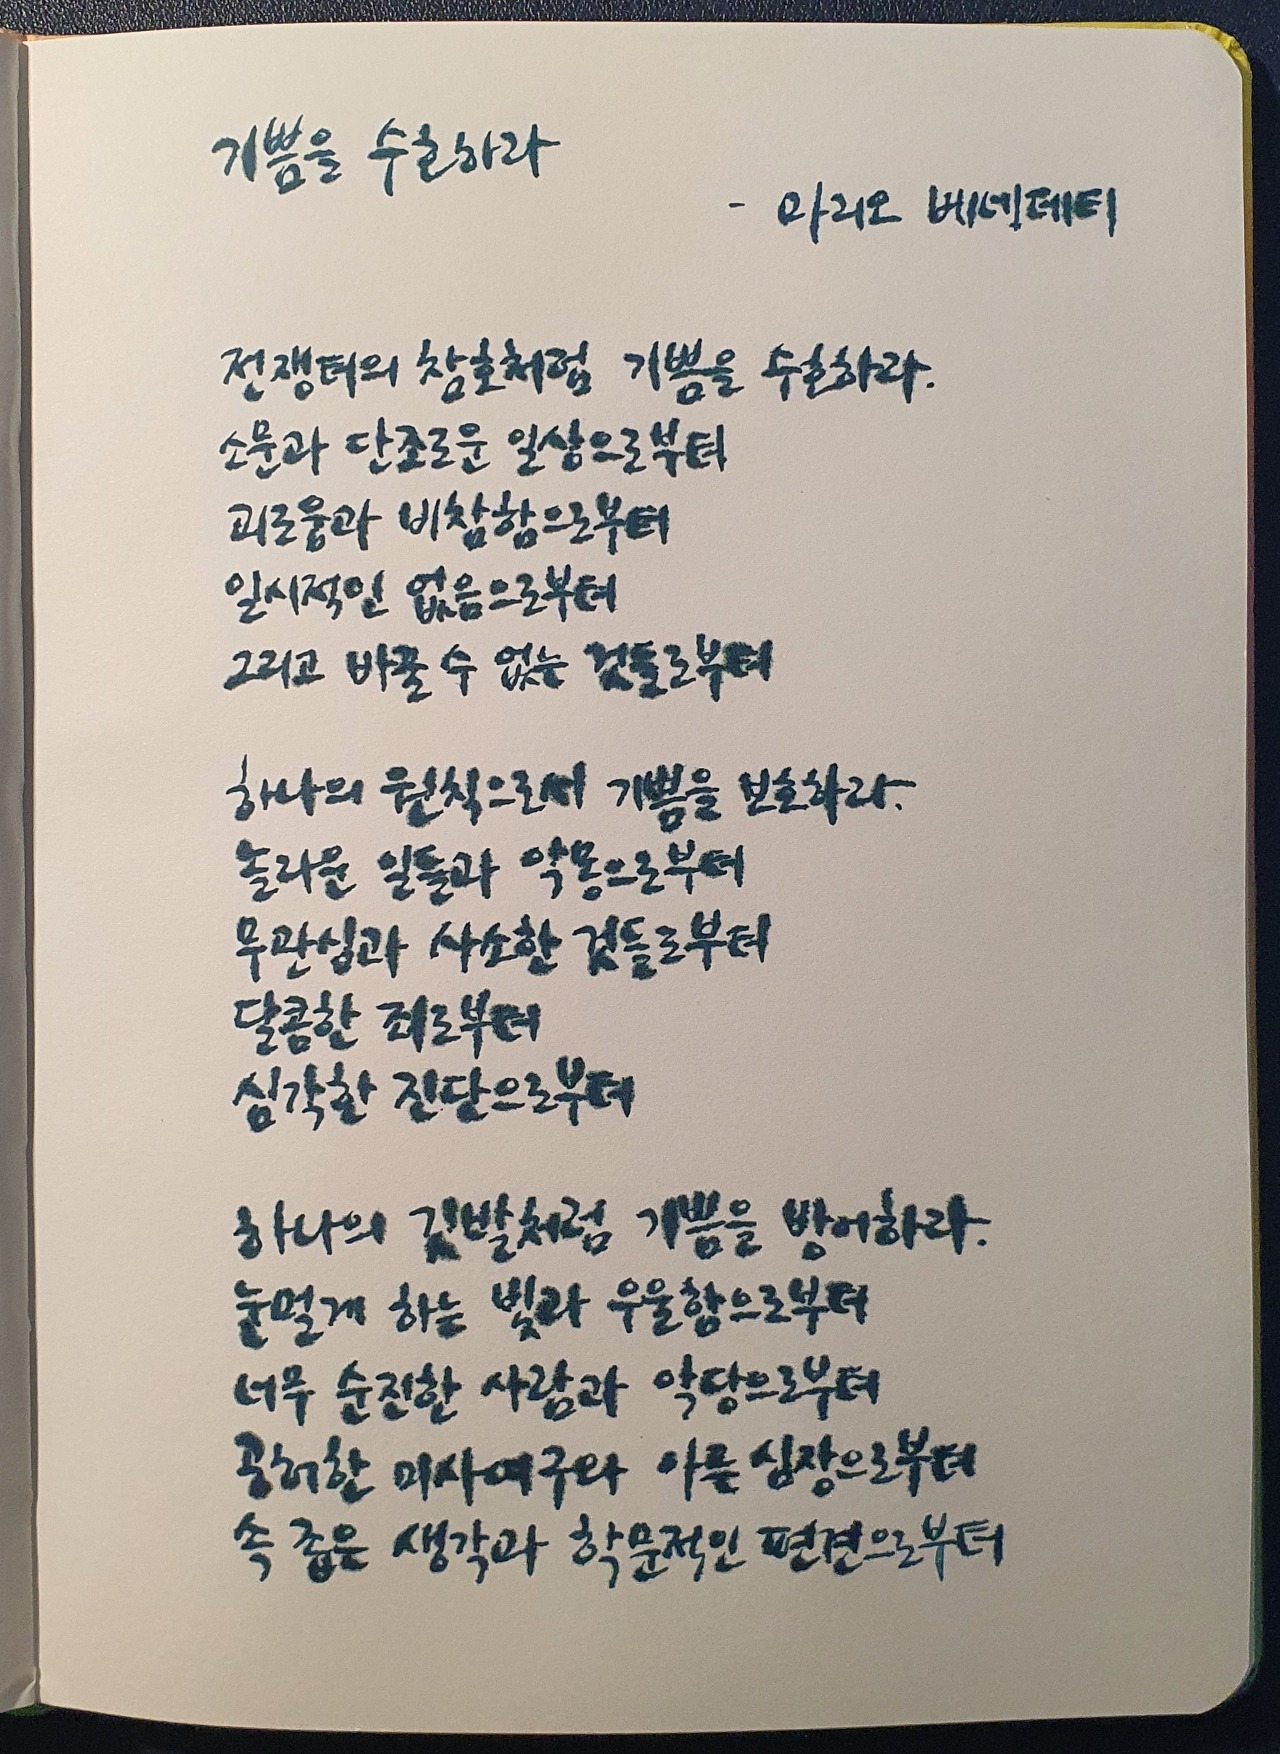 기쁨을 수호하라
- 마리오 베네데티
전쟁터의 참호처럼 기쁨을 수호하라.
소문과 단조로운 일상으로부터
괴로움과 비참함으로부터
일시적인 없음으로부터
그리고 바꿀 수 없는 것들로부터
하나의 원칙으로서 기쁨을 보호하라.
놀라운 일들과 악몽으로부터
무관심과 사소한 것들로부터
달콤한 죄로부터
심각한 진단으로부터
하나의 깃발처럼 기쁨을 방어하라.
눈멀게 하는 빛과 우울함으로부터
너무 순진한 사람과 악당으로부터
공허한 미사여구와 아픈 심장으로부터
속 좁은 생각과 학문적인 편견으로부터